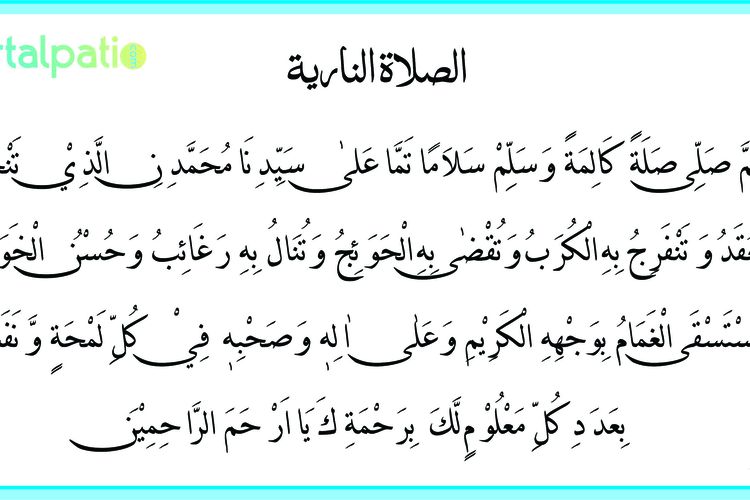 rtalpatio
الصلاة النارية
صَلِّى صَلَةً كَالِمَةً وَسَلِّمْ سَلاَمًا تَمَّا عَلىٰ سَيِّدِنَا مُحَمَّدِنِ الَّذِيْ
وَ تَنْفَرِجُ بِهِ الْكُرَبُ وَتُقْضٰى بِهِ الْحَوَئِجُ وَتُنَالُ بِهِ رَغَائِبُ وَحُسْنُ
الْغَمَامُ بِوَجْهِهِ الْكَرِيْمِ وَعَلىٰ اٰلِهٖ وَصَحْبِهٖ فِيْ كُلِّ لَمْحَةٍ
بِعَدَدِ كُلِّ مَعْلُوْمٍ لَّكَ بِرَحْمَةِكَ يَا اَرْحَمَ الرَّاحِمِيْنَ